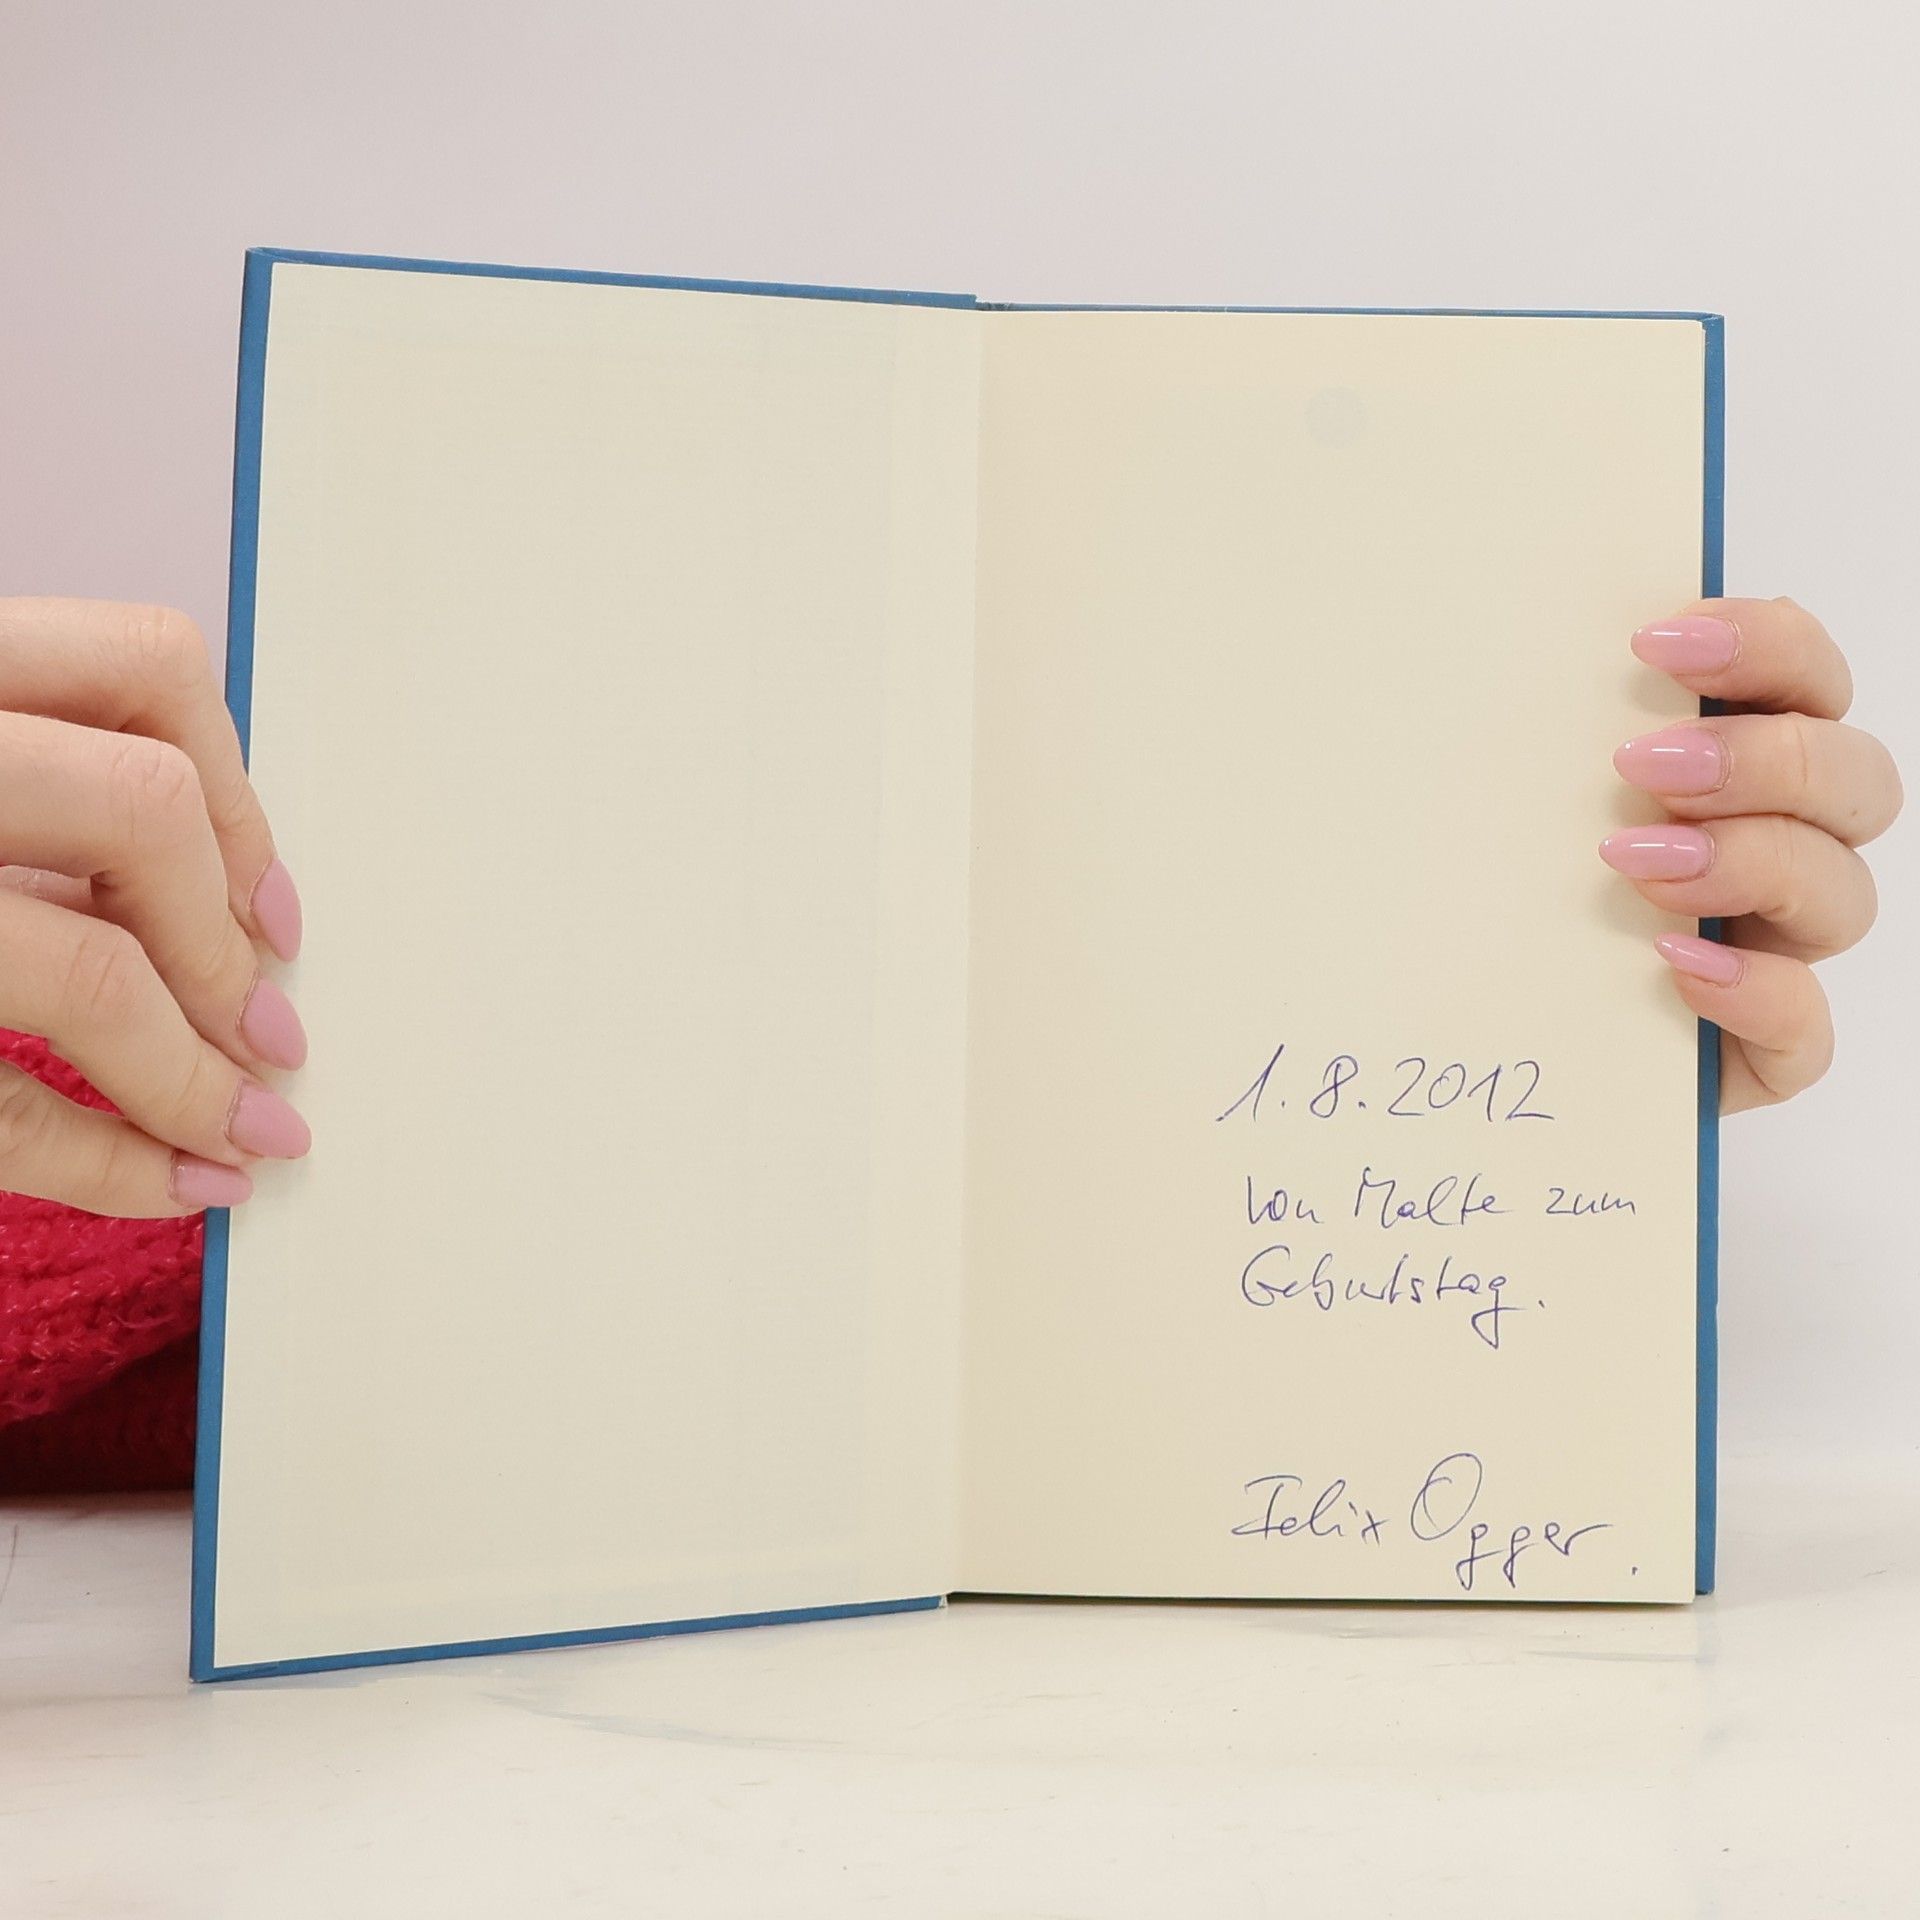 1.8.2012
von Malte zum
Geburtstag.
Felix Ogger.